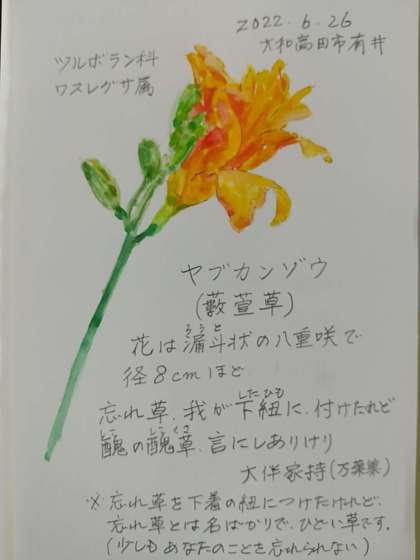 2022.6.26
大和高田市有井
ツルボラン科
ワスレグサ属
ヤブカンゾウ
(藪萱草)
花は漏斗状の八重咲で
径8cmほど
忘れ草、我が下紐に、付けたれど
醜の醜草、言にしありけり
大伴家持(万葉集)
※忘れ草を下着の紐につけたけれど、
忘れ草とは名ばかりで、ひどい草です。
(少しもあなたのことを忘れられない)